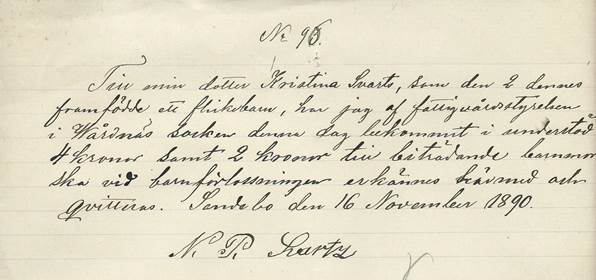 No 95.
Till min dotter Kristina Svarts, som den 2 dennes
framfödde ett flickebarn, har jag af fattigvårdsstyrelsen
i Wårdnäs socken denna dag bekommit i understöd
4 kronor samt 2 kronor till biträdande barnmor
ska vid barnförlossningen erkännes härmed och
qvitteras. Sandebo den 16 November 1890.
N. P. Svartz